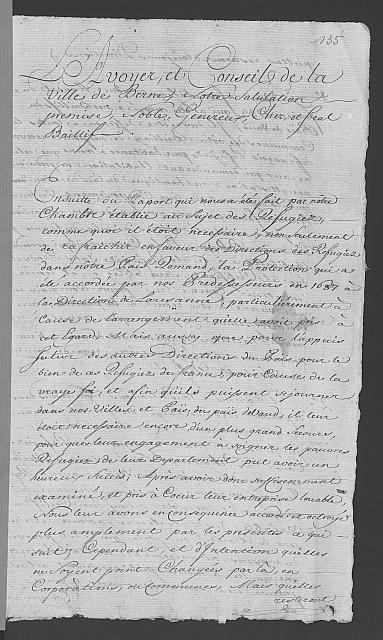 135
L'Avoyer, et Conseil de la
Ville de Berne, Notre Salutation
premise, Noble, Genereux, Cher, et feal
Baillif.
Ensuitte du Raport qui nous a été fait par nôtre
Chambre établie au Sujet des Refugiez,
comme quoi il étoit nécessaire, non seulement
de rafraichir en faveur des Directions des Refugiez
dans nôtre Païs Romand, la Protection qui a
été accordée par nos Predecesseurs en 1687 à
la Direction de Lausanne, particulièrement à
Cause de l'arrengement qu'elle avoit pris à
cet Egard, Mais aussi que pour l'appuis
futur des autres Directions du Païs, pour le
bien de ces Refugiez de france, pour Cause de la
vraye foi, et afin qu'ils puissent sejourner
dans nos Villes et Païs, du païs de Vaud, il leur
étoit necessaire encore d'un plus grand Secours,
pour que leur engagement à soigner les pauvres
Refugiez, de leur Departement put avoir un
heureux Succès; Après avoir donc suffisemment
examiné, et pris à Coeur leur entreprise louable
Nous leur avons en consequence accordé et octroyé
plus amplement par les presentes ce qui
suit, Cependant et d'Intention qu'elles
ne Soyent point Changées par là en
Corporations, ou Communes, Mais qu'elles
resteront